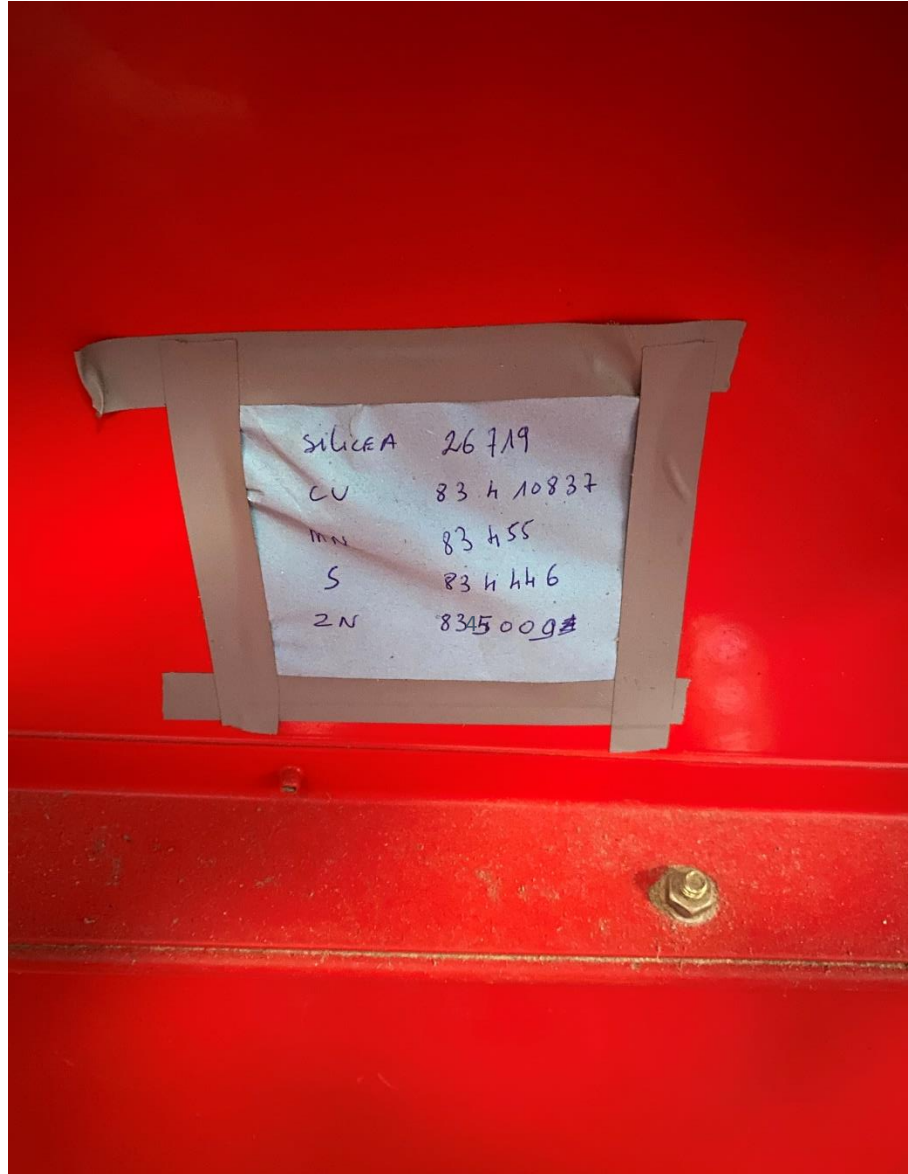 SILICEA 26719
CU 83 4 10837
MN 83 455
S 834 446
ZN 8345009